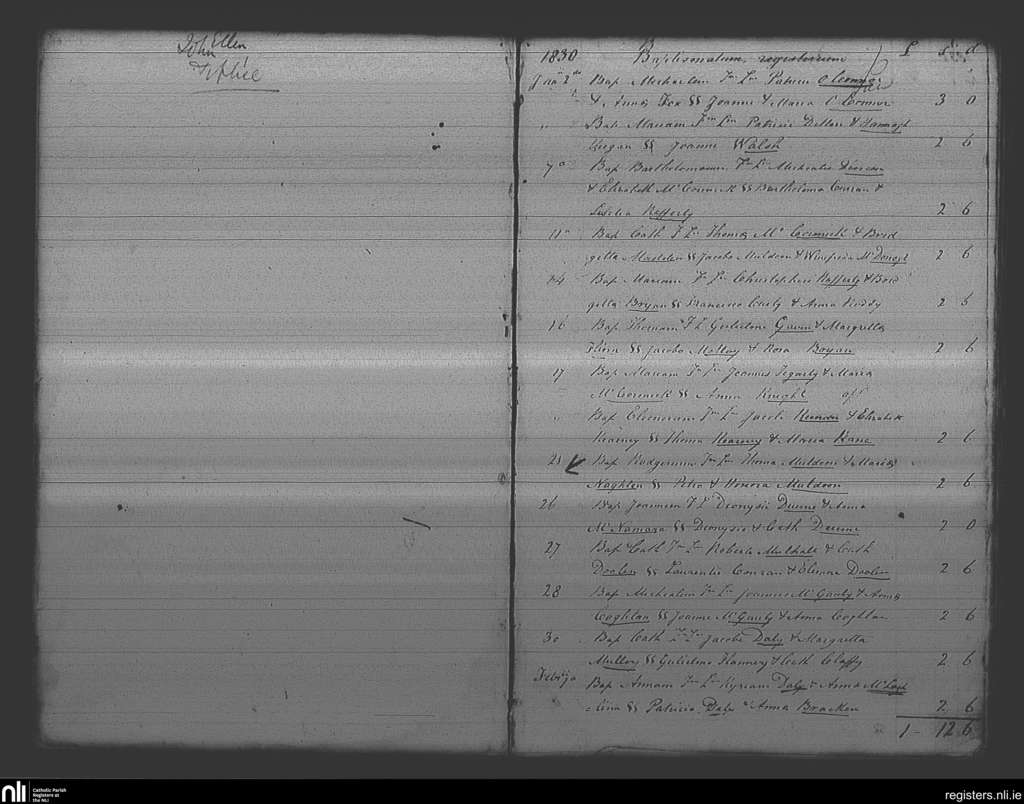 John Ellen
1830 Baptismatum registerium £ s d
Jan 2 Bap Michaelem F L Patricii O Connor
& Anna Fox SS Joanne & Maria O Connor 3 0
" Bap Mariam F L Patricii Dillon &
SS Joanne Walsh 2 6
7 Bap Bartholomaeum F L Michaelis
& Elizabeth McCormick SS Bartholomo Conran &
Rafferty 2 6
11 Bap Cath F L Thomas Mc Cormick & Brid
getta SS Jacobo Muldoon & Winefrida 2 6
Bap Mariam F L Christopheri Rafferty & Brid
getta Bryan SS Francisco & Anna Reddy 2 6
16 Bap Thomam F L Gulielmi & Margretta
SS Jacobo Molloy & Rosa Bryan 2 6
17 Bap Mariam F L Joannes Fegarty & Maria
McCormick SS Anna Knight
" Bap Elenoram F L Jacobi & Elizabeth
Kearney SS Thoma Kearney & Maria Kane 2 6
21 Bap Rodgerum F L Thoma Muldoon & Maria
Naghten SS Petro & Honora Muldoon 2 6
26 Bap Joannem F L Dionysii Dunne & Anna
McNamara SS Dionysio & Cath Dunne 2 0
27 Bap Cath F L Roberti Mulhall & Cath
Doolen SS Laurentio Conran & Doolen 2 6
28 Bap Michaelem F L Joannes McGauly & Anna
Coghlan SS Joanne McGauly & Anna Coghlan 2 6
30 Bap Cath F L Jacobi Daly & Margretta
Molloy SS Gulielmo Flannery & Cath Claffy 2 6
Bap Annam F L Kyrani Daly & Anna
SS Patricio Daly & Anna Bracken 2 6
1 - 12 6
nli Catholic Parish
Registers at
the NLI
registers.nli.ie